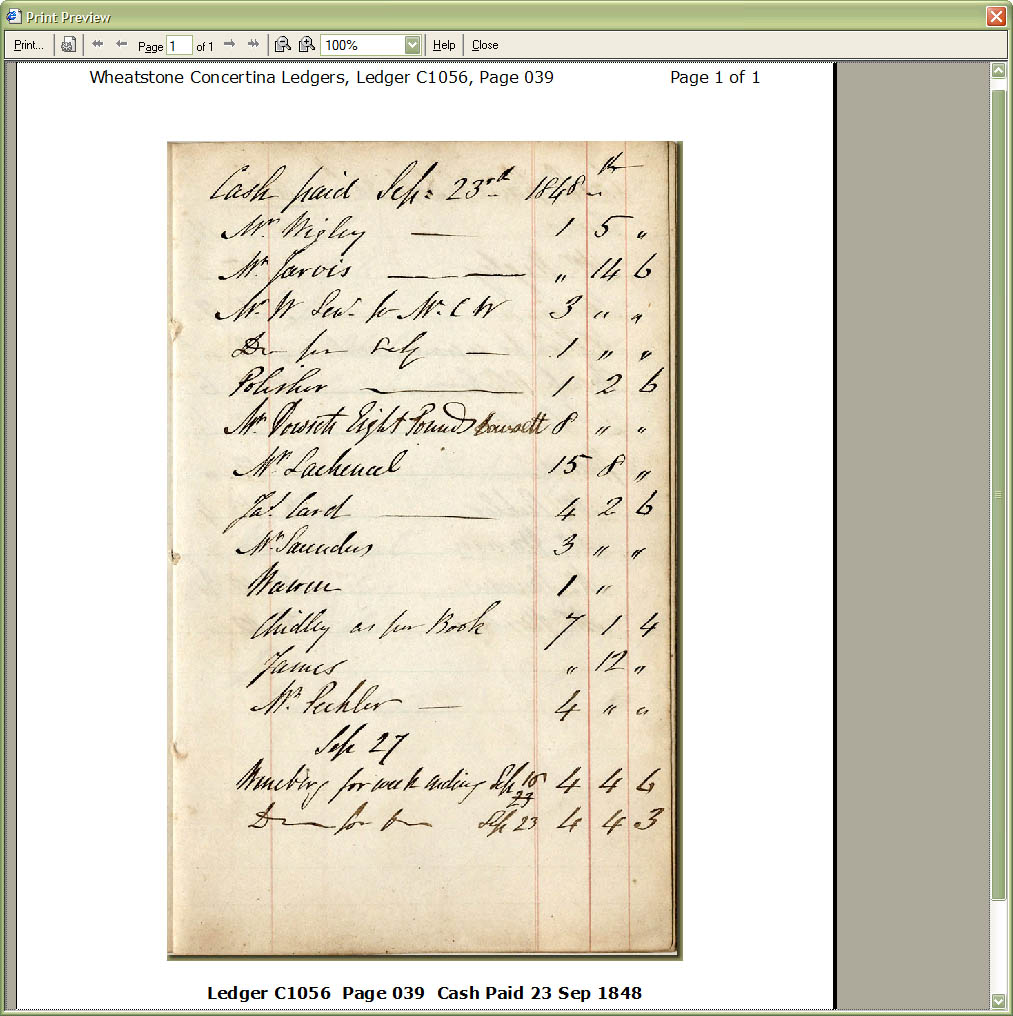 Print Preview
Print... Page 1 of 1 100% Help Close
Wheatstone Concertina Ledgers, Ledger C1056, Page 039 Page 1 of 1
Cash paid Sep: 23rd 1848
Mr Wigley — 1 5 "
Mr Jarvis — " 14 6
Mr W Senr. for Mr. C W 3 " "
Do for Self — 1 " "
Polisher — 1 2 6
Mr Dowsett Eight Pounds Dowsett 8 " "
Mr Lachenal 15 8 "
Jas. Card — 4 2 6
Mr Saunders 3 " "
Warren 1 "
Chidley as per Book 7 1 4
James " 12 "
Mr. Pechler — 4 " "
Sep 27
for week ending Sep 4 4 6
Do for Do Sep 23 4 4 3
Ledger C1056 Page 039 Cash Paid 23 Sep 1848